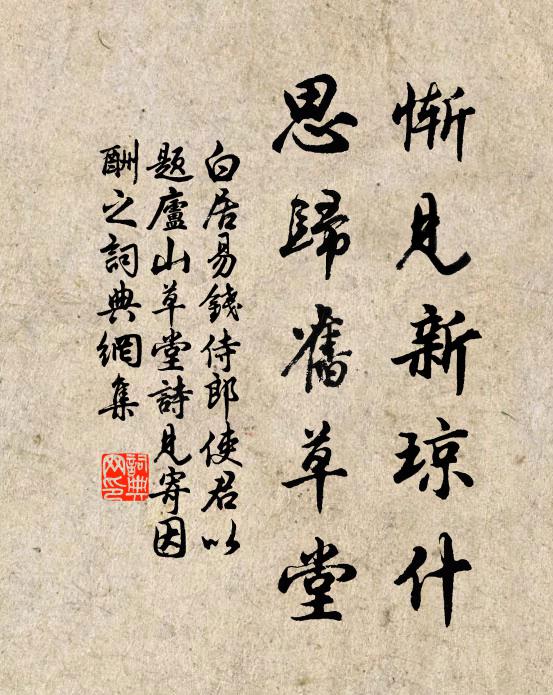 慚見新琼什
思歸舊草堂
白居易錢侍郎使君以
題廬山草堂詩見寄因
酬之詞典網集
詞典
网印